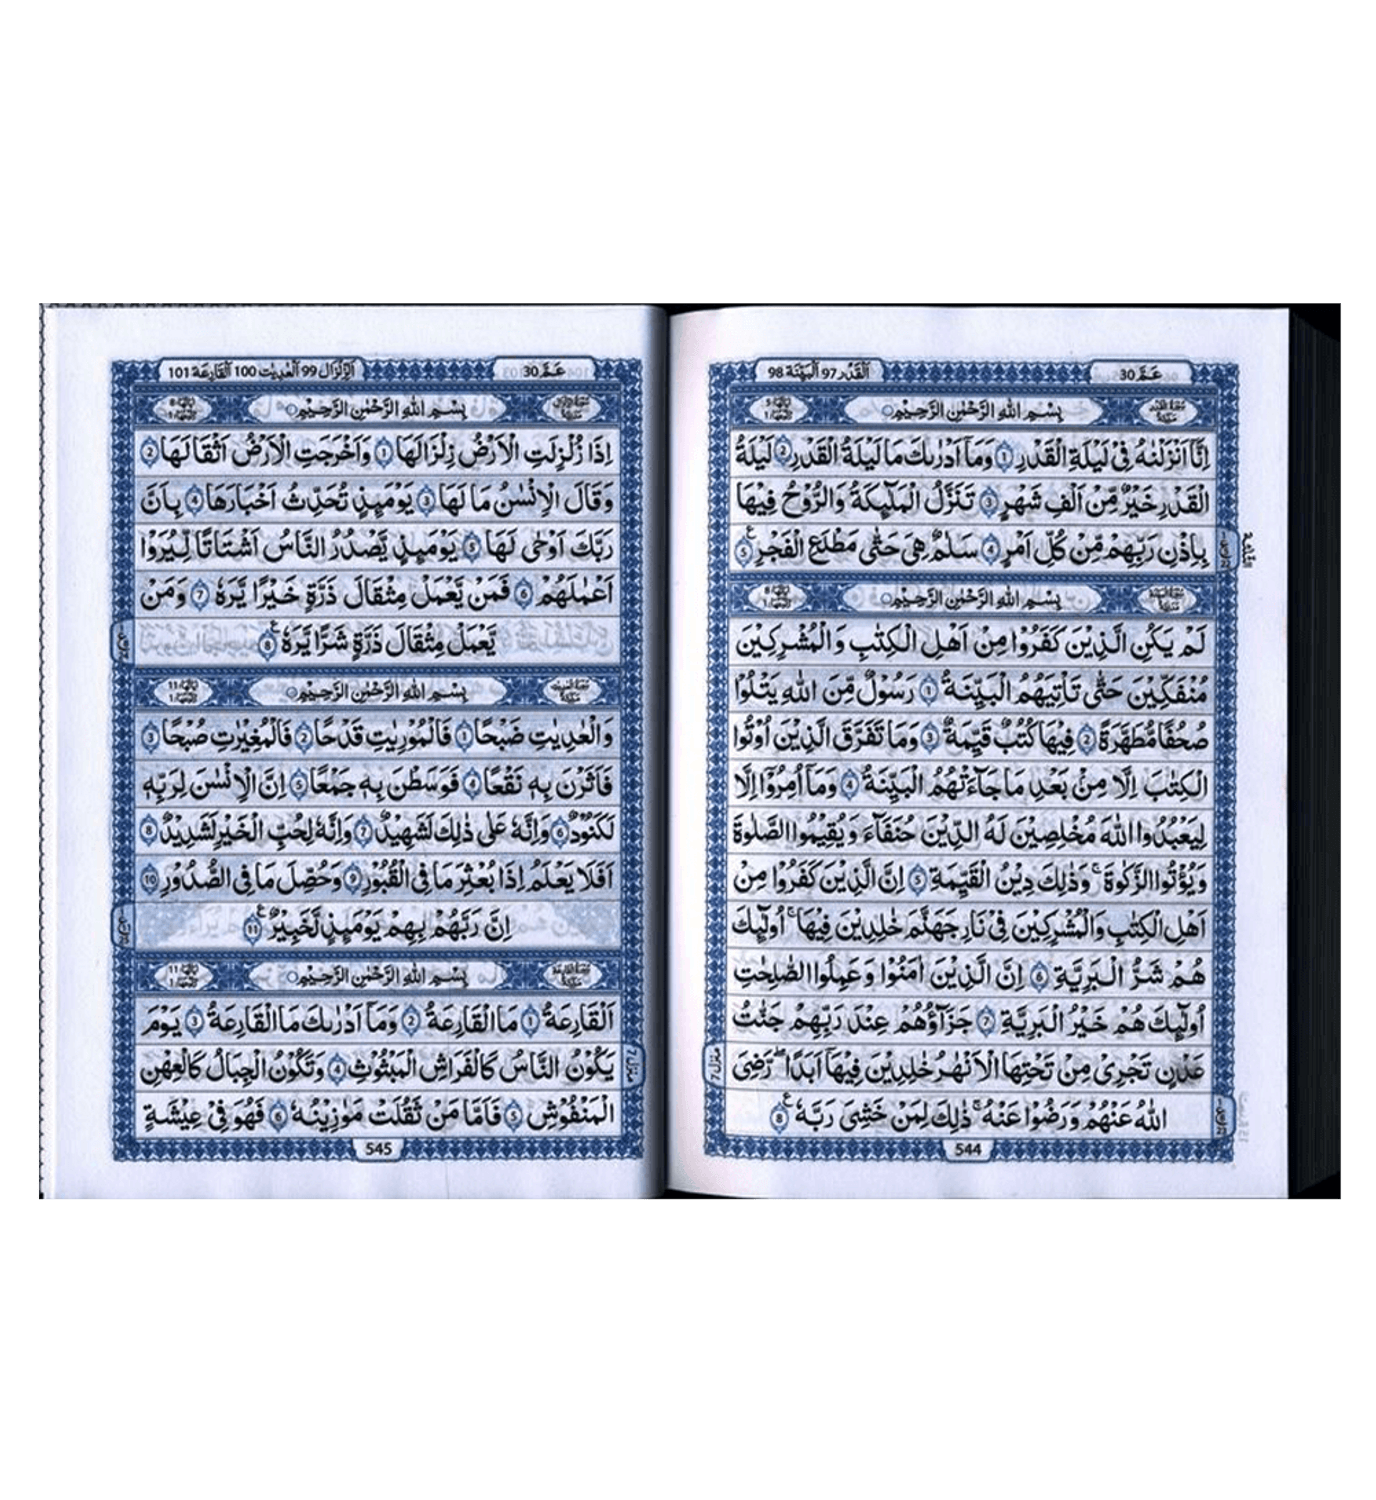 عَـمَّ 30
اَلْقَدْر 97 اَلْبَيِّنَة 98
بِسْمِ اللّٰهِ الرَّحْمٰنِ الرَّحِيْمِ
اِنَّاۤ اَنْزَلْنٰهُ فِىْ لَيْلَةِ الْقَدْرِ 1 وَمَاۤ اَدْرٰىكَ مَا لَيْلَةُ الْقَدْرِ 2 لَيْلَةُ
الْقَدْرِ خَيْرٌ مِّنْ اَلْفِ شَهْرٍ 3 تَنَزَّلُ الْمَلٰٓئِكَةُ وَالرُّوْحُ فِيْهَا
بِاِذْنِ رَبِّهِمْ مِّنْ كُلِّ اَمْرٍ 4 سَلٰمٌ هِىَ حَتّٰى مَطْلَعِ الْفَجْرِ 5
بِسْمِ اللّٰهِ الرَّحْمٰنِ الرَّحِيْمِ
لَمْ يَكُنِ الَّذِيْنَ كَفَرُوْا مِنْ اَهْلِ الْكِتٰبِ وَالْمُشْرِكِيْنَ
مُنْفَكِّيْنَ حَتّٰى تَاْتِيَهُمُ الْبَيِّنَةُ 1 رَسُوْلٌ مِّنَ اللّٰهِ يَتْلُوْا
صُحُفًا مُّطَهَّرَةً 2 فِيْهَا كُتُبٌ قَيِّمَةٌ 3 وَمَا تَفَرَّقَ الَّذِيْنَ اُوْتُوا
الْكِتٰبَ اِلَّا مِنْۢ بَعْدِ مَا جَآءَتْهُمُ الْبَيِّنَةُ 4 وَمَاۤ اُمِرُوْۤا اِلَّا
لِيَعْبُدُوا اللّٰهَ مُخْلِصِيْنَ لَهُ الدِّيْنَ حُنَفَآءَ وَيُقِيْمُوا الصَّلٰوةَ
وَيُؤْتُوا الزَّكٰوةَ وَذٰلِكَ دِيْنُ الْقَيِّمَةِ 5 اِنَّ الَّذِيْنَ كَفَرُوْا مِنْ
اَهْلِ الْكِتٰبِ وَالْمُشْرِكِيْنَ فِىْ نَارِ جَهَنَّمَ خٰلِدِيْنَ فِيْهَا اُولٰٓئِكَ
هُمْ شَرُّ الْبَرِيَّةِ 6 اِنَّ الَّذِيْنَ اٰمَنُوْا وَعَمِلُوا الصّٰلِحٰتِ
اُولٰٓئِكَ هُمْ خَيْرُ الْبَرِيَّةِ 7 جَزَآؤُهُمْ عِنْدَ رَبِّهِمْ جَنّٰتُ
عَدْنٍ تَجْرِىْ مِنْ تَحْتِهَا الْاَنْهٰرُ خٰلِدِيْنَ فِيْهَاۤ اَبَدًا رَضِىَ
اللّٰهُ عَنْهُمْ وَرَضُوْا عَنْهُ ذٰلِكَ لِمَنْ خَشِىَ رَبَّهٗ 8
منزل 7
544
عَـمَّ 30
اَلزِّلْزَال 99 اَلْعٰدِيٰت 100 اَلْقَارِعَة 101
بِسْمِ اللّٰهِ الرَّحْمٰنِ الرَّحِيْمِ
اِذَا زُلْزِلَتِ الْاَرْضُ زِلْزَالَهَا 1 وَاَخْرَجَتِ الْاَرْضُ اَثْقَالَهَا 2
وَقَالَ الْاِنْسٰنُ مَا لَهَا 3 يَوْمَئِذٍ تُحَدِّثُ اَخْبَارَهَا 4 بِاَنَّ
رَبَّكَ اَوْحٰى لَهَا 5 يَوْمَئِذٍ يَّصْدُرُ النَّاسُ اَشْتَاتًا لِّيُرَوْا
اَعْمٰلَهُمْ 6 فَمَنْ يَّعْمَلْ مِثْقَالَ ذَرَّةٍ خَيْرًا يَّرَهٗ 7 وَمَنْ
يَّعْمَلْ مِثْقَالَ ذَرَّةٍ شَرًّا يَّرَهٗ 8
بِسْمِ اللّٰهِ الرَّحْمٰنِ الرَّحِيْمِ
وَالْعٰدِيٰتِ ضَبْحًا 1 فَالْمُوْرِيٰتِ قَدْحًا 2 فَالْمُغِيْرٰتِ صُبْحًا 3
فَاَثَرْنَ بِهٖ نَقْعًا 4 فَوَسَطْنَ بِهٖ جَمْعًا 5 اِنَّ الْاِنْسٰنَ لِرَبِّهٖ
لَكَنُوْدٌ 6 وَاِنَّهٗ عَلٰى ذٰلِكَ لَشَهِيْدٌ 7 وَاِنَّهٗ لِحُبِّ الْخَيْرِ لَشَدِيْدٌ 8
اَفَلَا يَعْلَمُ اِذَا بُعْثِرَ مَا فِى الْقُبُوْرِ 9 وَحُصِّلَ مَا فِى الصُّدُوْرِ 10
اِنَّ رَبَّهُمْ بِهِمْ يَوْمَئِذٍ لَّخَبِيْرٌ 11
بِسْمِ اللّٰهِ الرَّحْمٰنِ الرَّحِيْمِ
اَلْقَارِعَةُ 1 مَا الْقَارِعَةُ 2 وَمَاۤ اَدْرٰىكَ مَا الْقَارِعَةُ 3 يَوْمَ
يَكُوْنُ النَّاسُ كَالْفَرَاشِ الْمَبْثُوْثِ 4 وَتَكُوْنُ الْجِبَالُ كَالْعِهْنِ
الْمَنْفُوْشِ 5 فَاَمَّا مَنْ ثَقُلَتْ مَوٰزِيْنُهٗ 6 فَهُوَ فِىْ عِيْشَةٍ
منزل 7
545